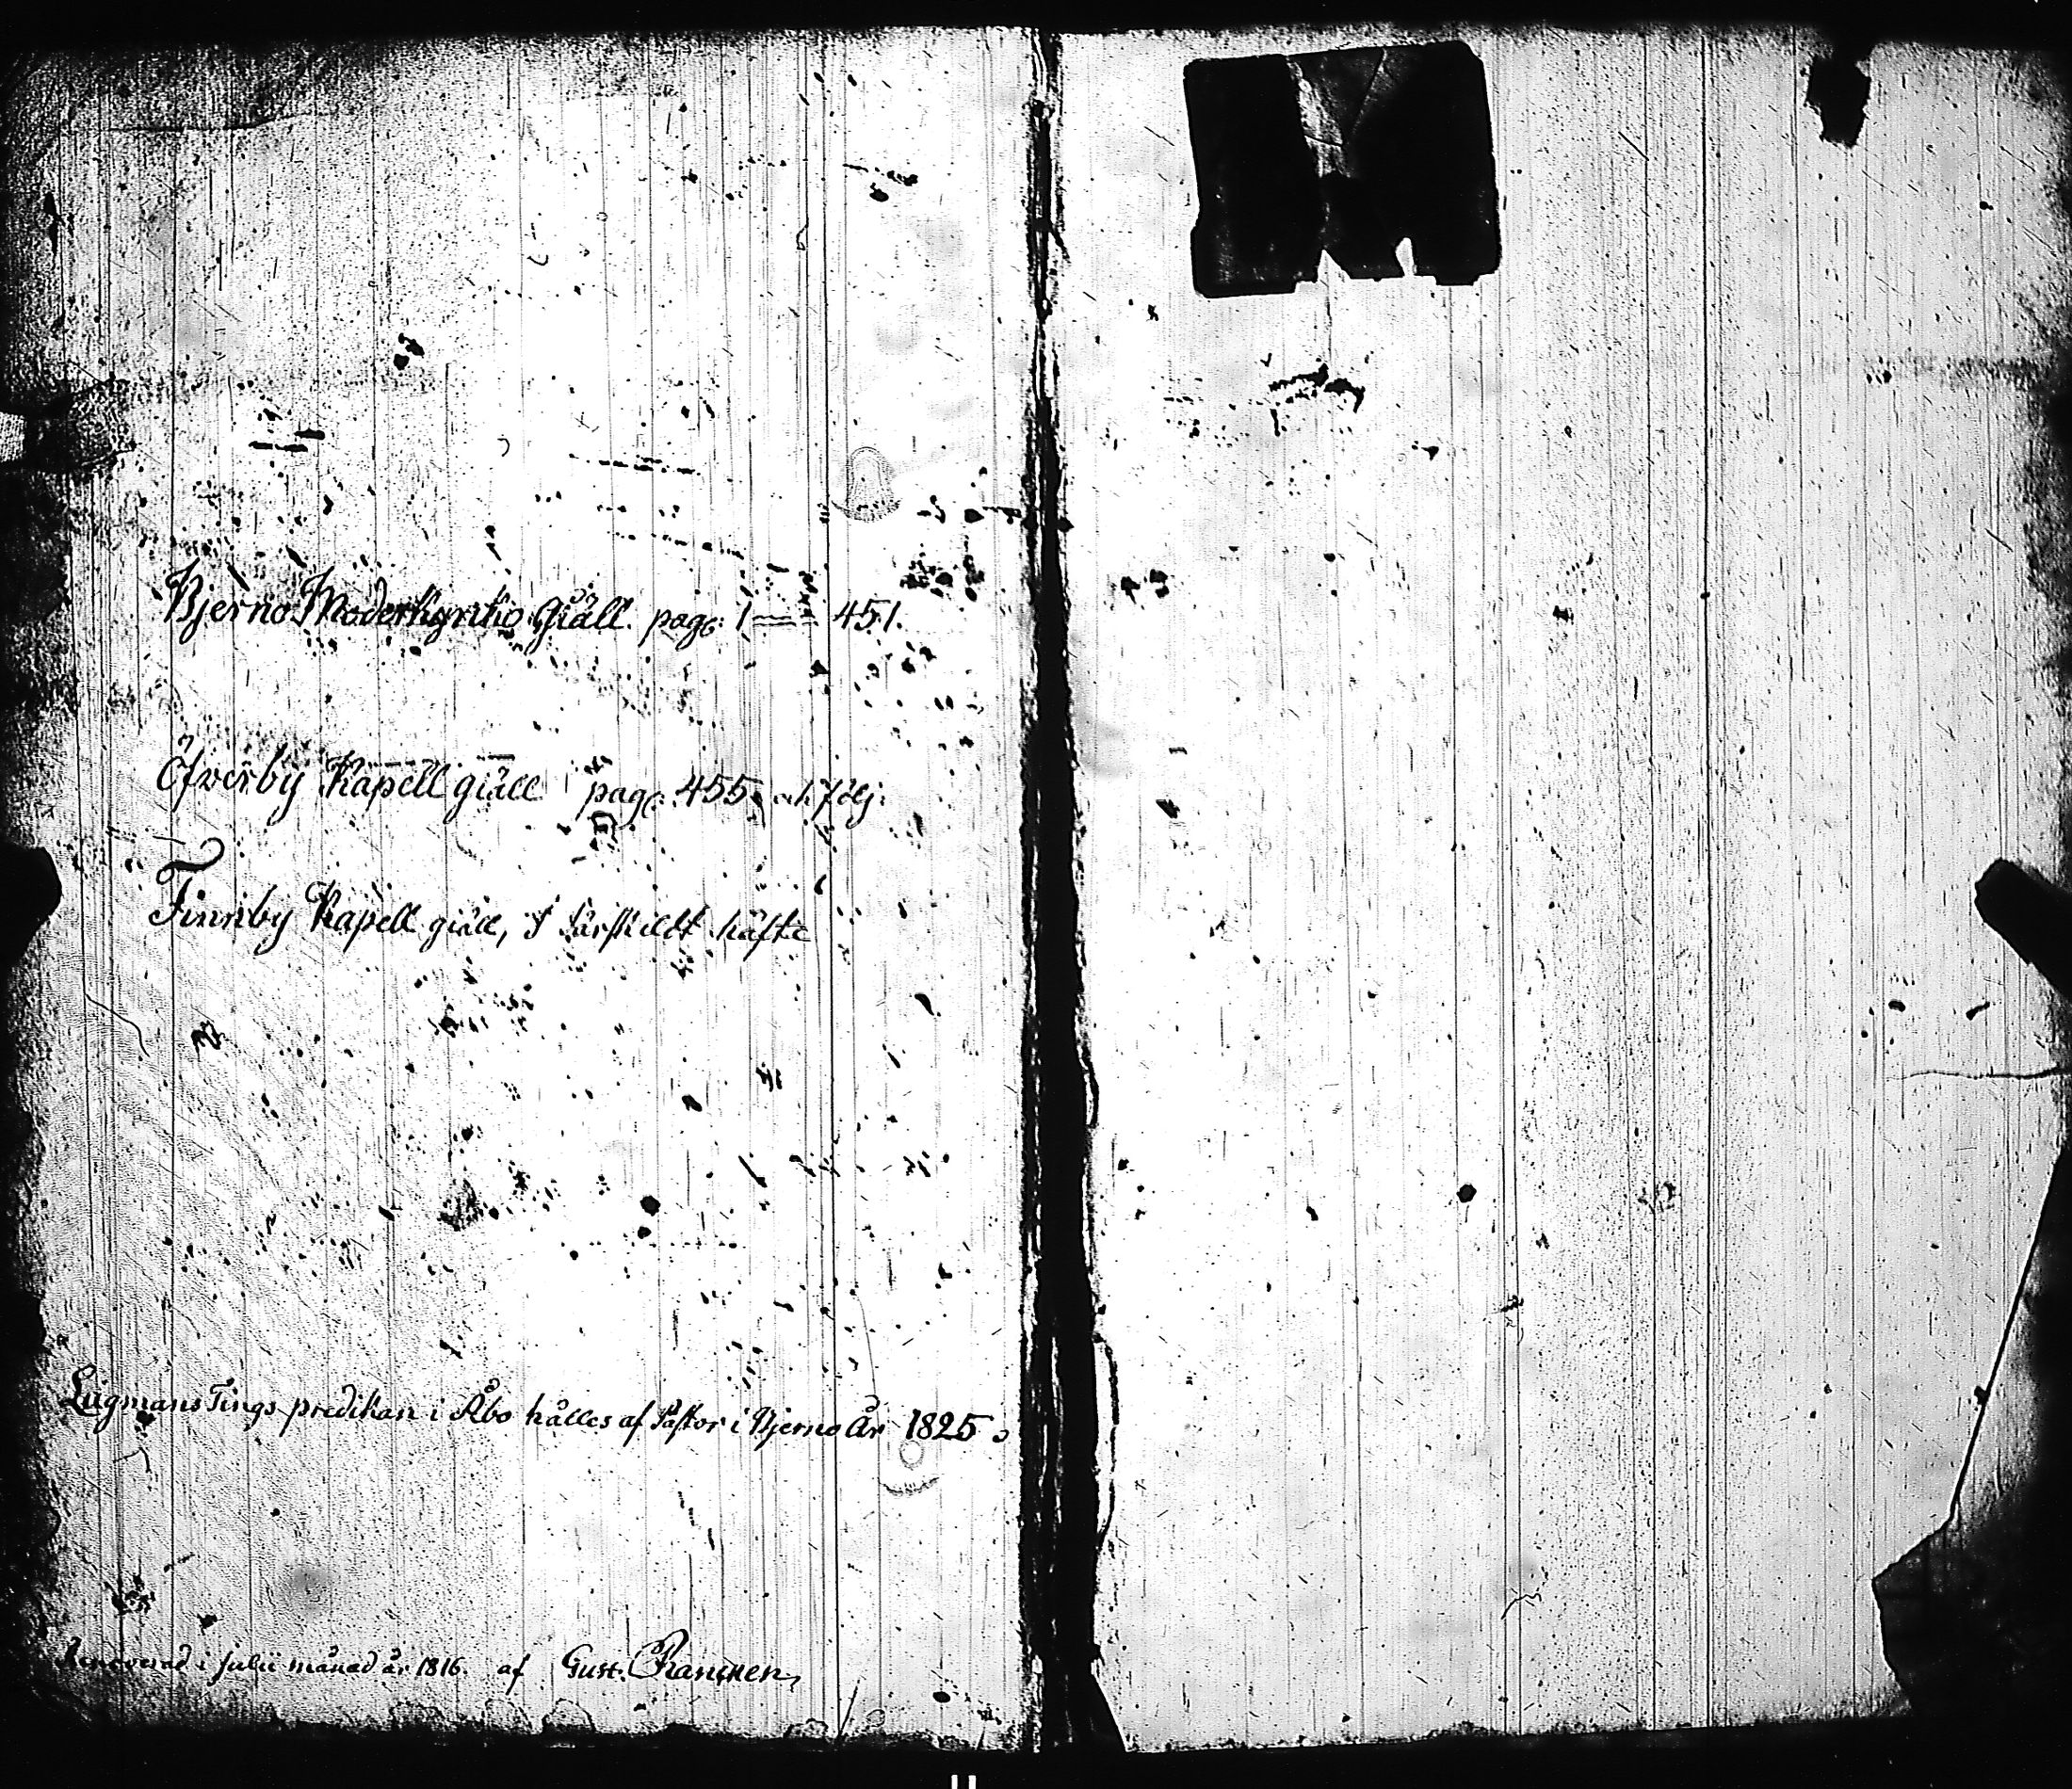 Bjerno Moderkyrkio Giäll. pag: 1 == 451.
Öfverby Kapell giäll pag: 455. och följ:
Finnby Kapell giäll, i särskildt häfte
Lagmans Tings predikan i Åbo hålles af Pastor i Bjerno År 1825.
Renoverad i Julii månad år 1816. af Gust. Rancken,